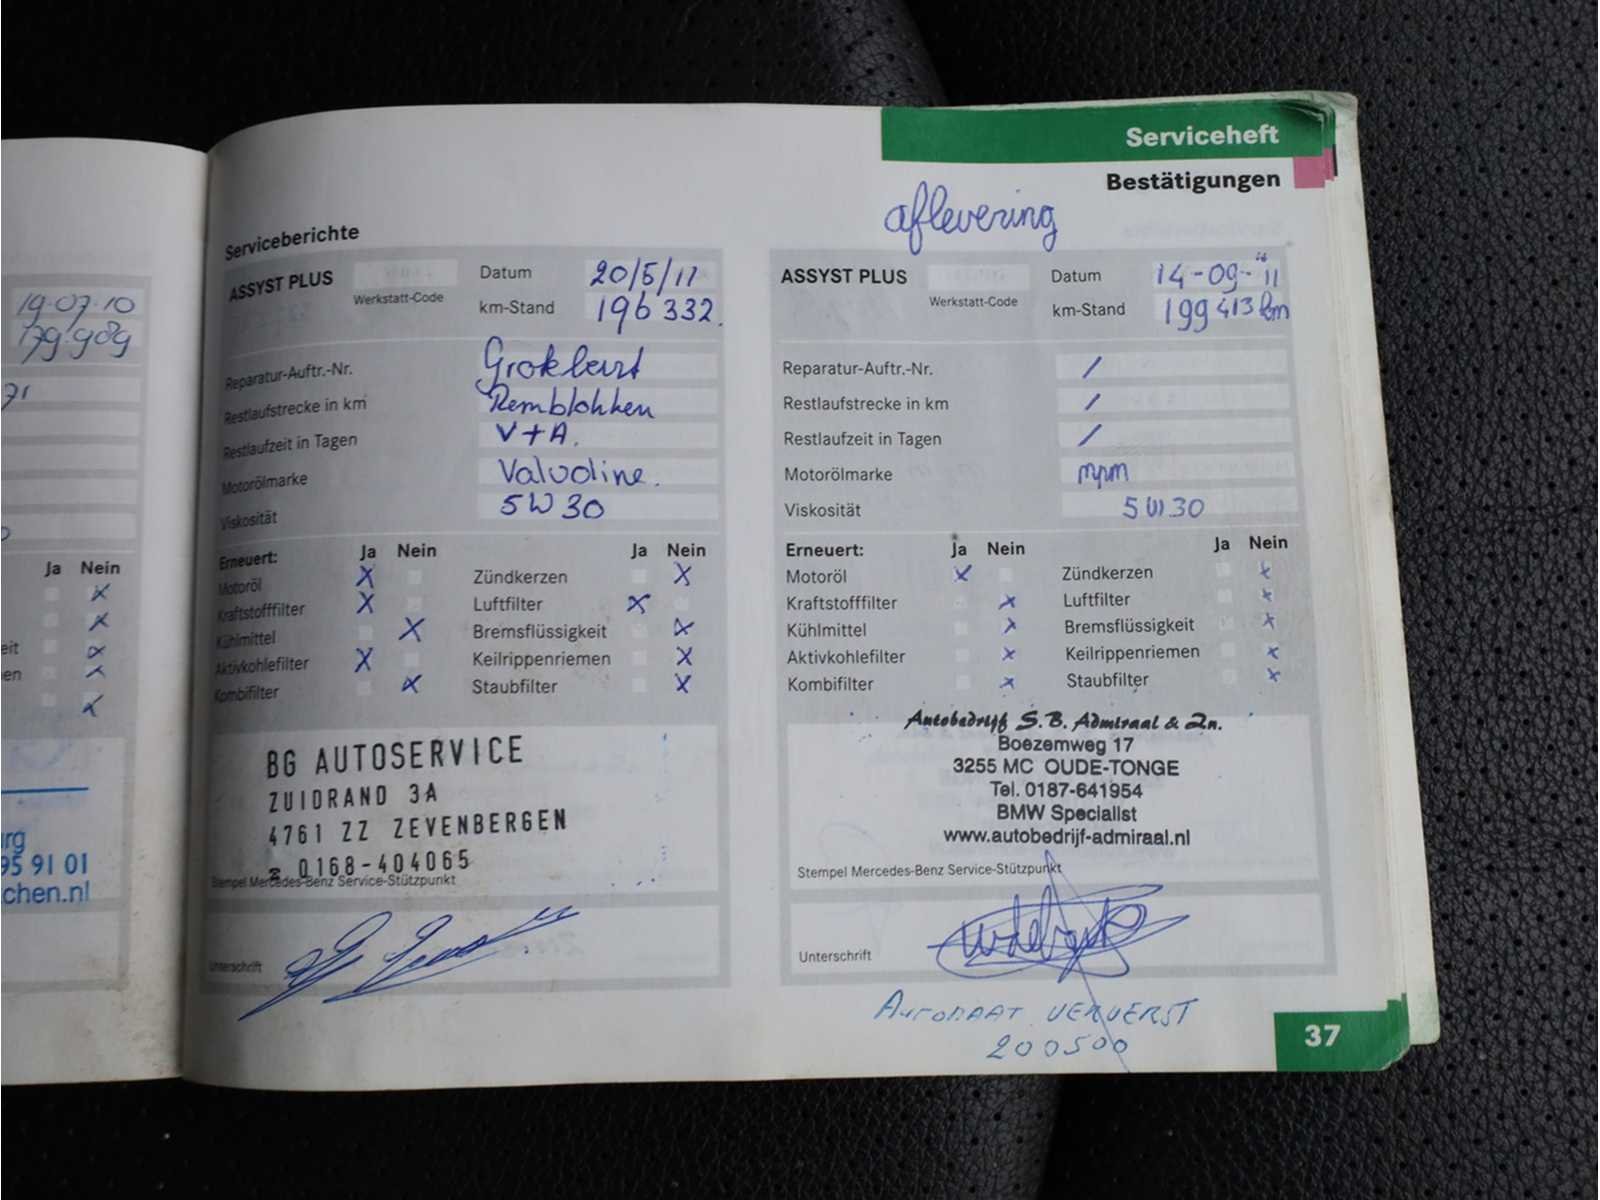 Serviceheft
Bestätigungen
19-07-10
179.989
71
Ja Nein
eit
en
rg
95 91 01
chen.nl
Serviceberichte
ASSYST PLUS
Werkstatt-Code
Datum 20/5/11
km-Stand 196 332.
Reparatur-Auftr.-Nr. Grokbeurt
Restlaufstrecke in km Remblokken
Restlaufzeit in Tagen V+A.
Motorölmarke Valvoline.
Viskosität 5W30
Erneuert: Ja Nein Ja Nein
Motoröl X Zündkerzen X
Kraftstofffilter X Luftfilter X
Kühlmittel X Bremsflüssigkeit X
Aktivkohlefilter X Keilrippenriemen X
Kombifilter X Staubfilter X
BG AUTOSERVICE
ZUIDRAND 3A
4761 ZZ ZEVENBERGEN
0168-404065
Stempel Mercedes-Benz Service-Stützpunkt
Unterschrift
aflevering
ASSYST PLUS
Werkstatt-Code
Datum 14-09-'11
km-Stand 199 413 km
Reparatur-Auftr.-Nr. /
Restlaufstrecke in km /
Restlaufzeit in Tagen /
Motorölmarke mpm
Viskosität 5W30
Erneuert: Ja Nein Ja Nein
Motoröl x Zündkerzen x
Kraftstofffilter x Luftfilter x
Kühlmittel x Bremsflüssigkeit x
Aktivkohlefilter x Keilrippenriemen x
Kombifilter x Staubfilter x
Autobedrijf S.B. Admiraal & Zn.
Boezemweg 17
3255 MC OUDE-TONGE
Tel. 0187-641954
BMW Specialist
www.autobedrijf-admiraal.nl
Stempel Mercedes-Benz Service-Stützpunkt
Unterschrift
AUTOMAAT VERVERST
200500
37